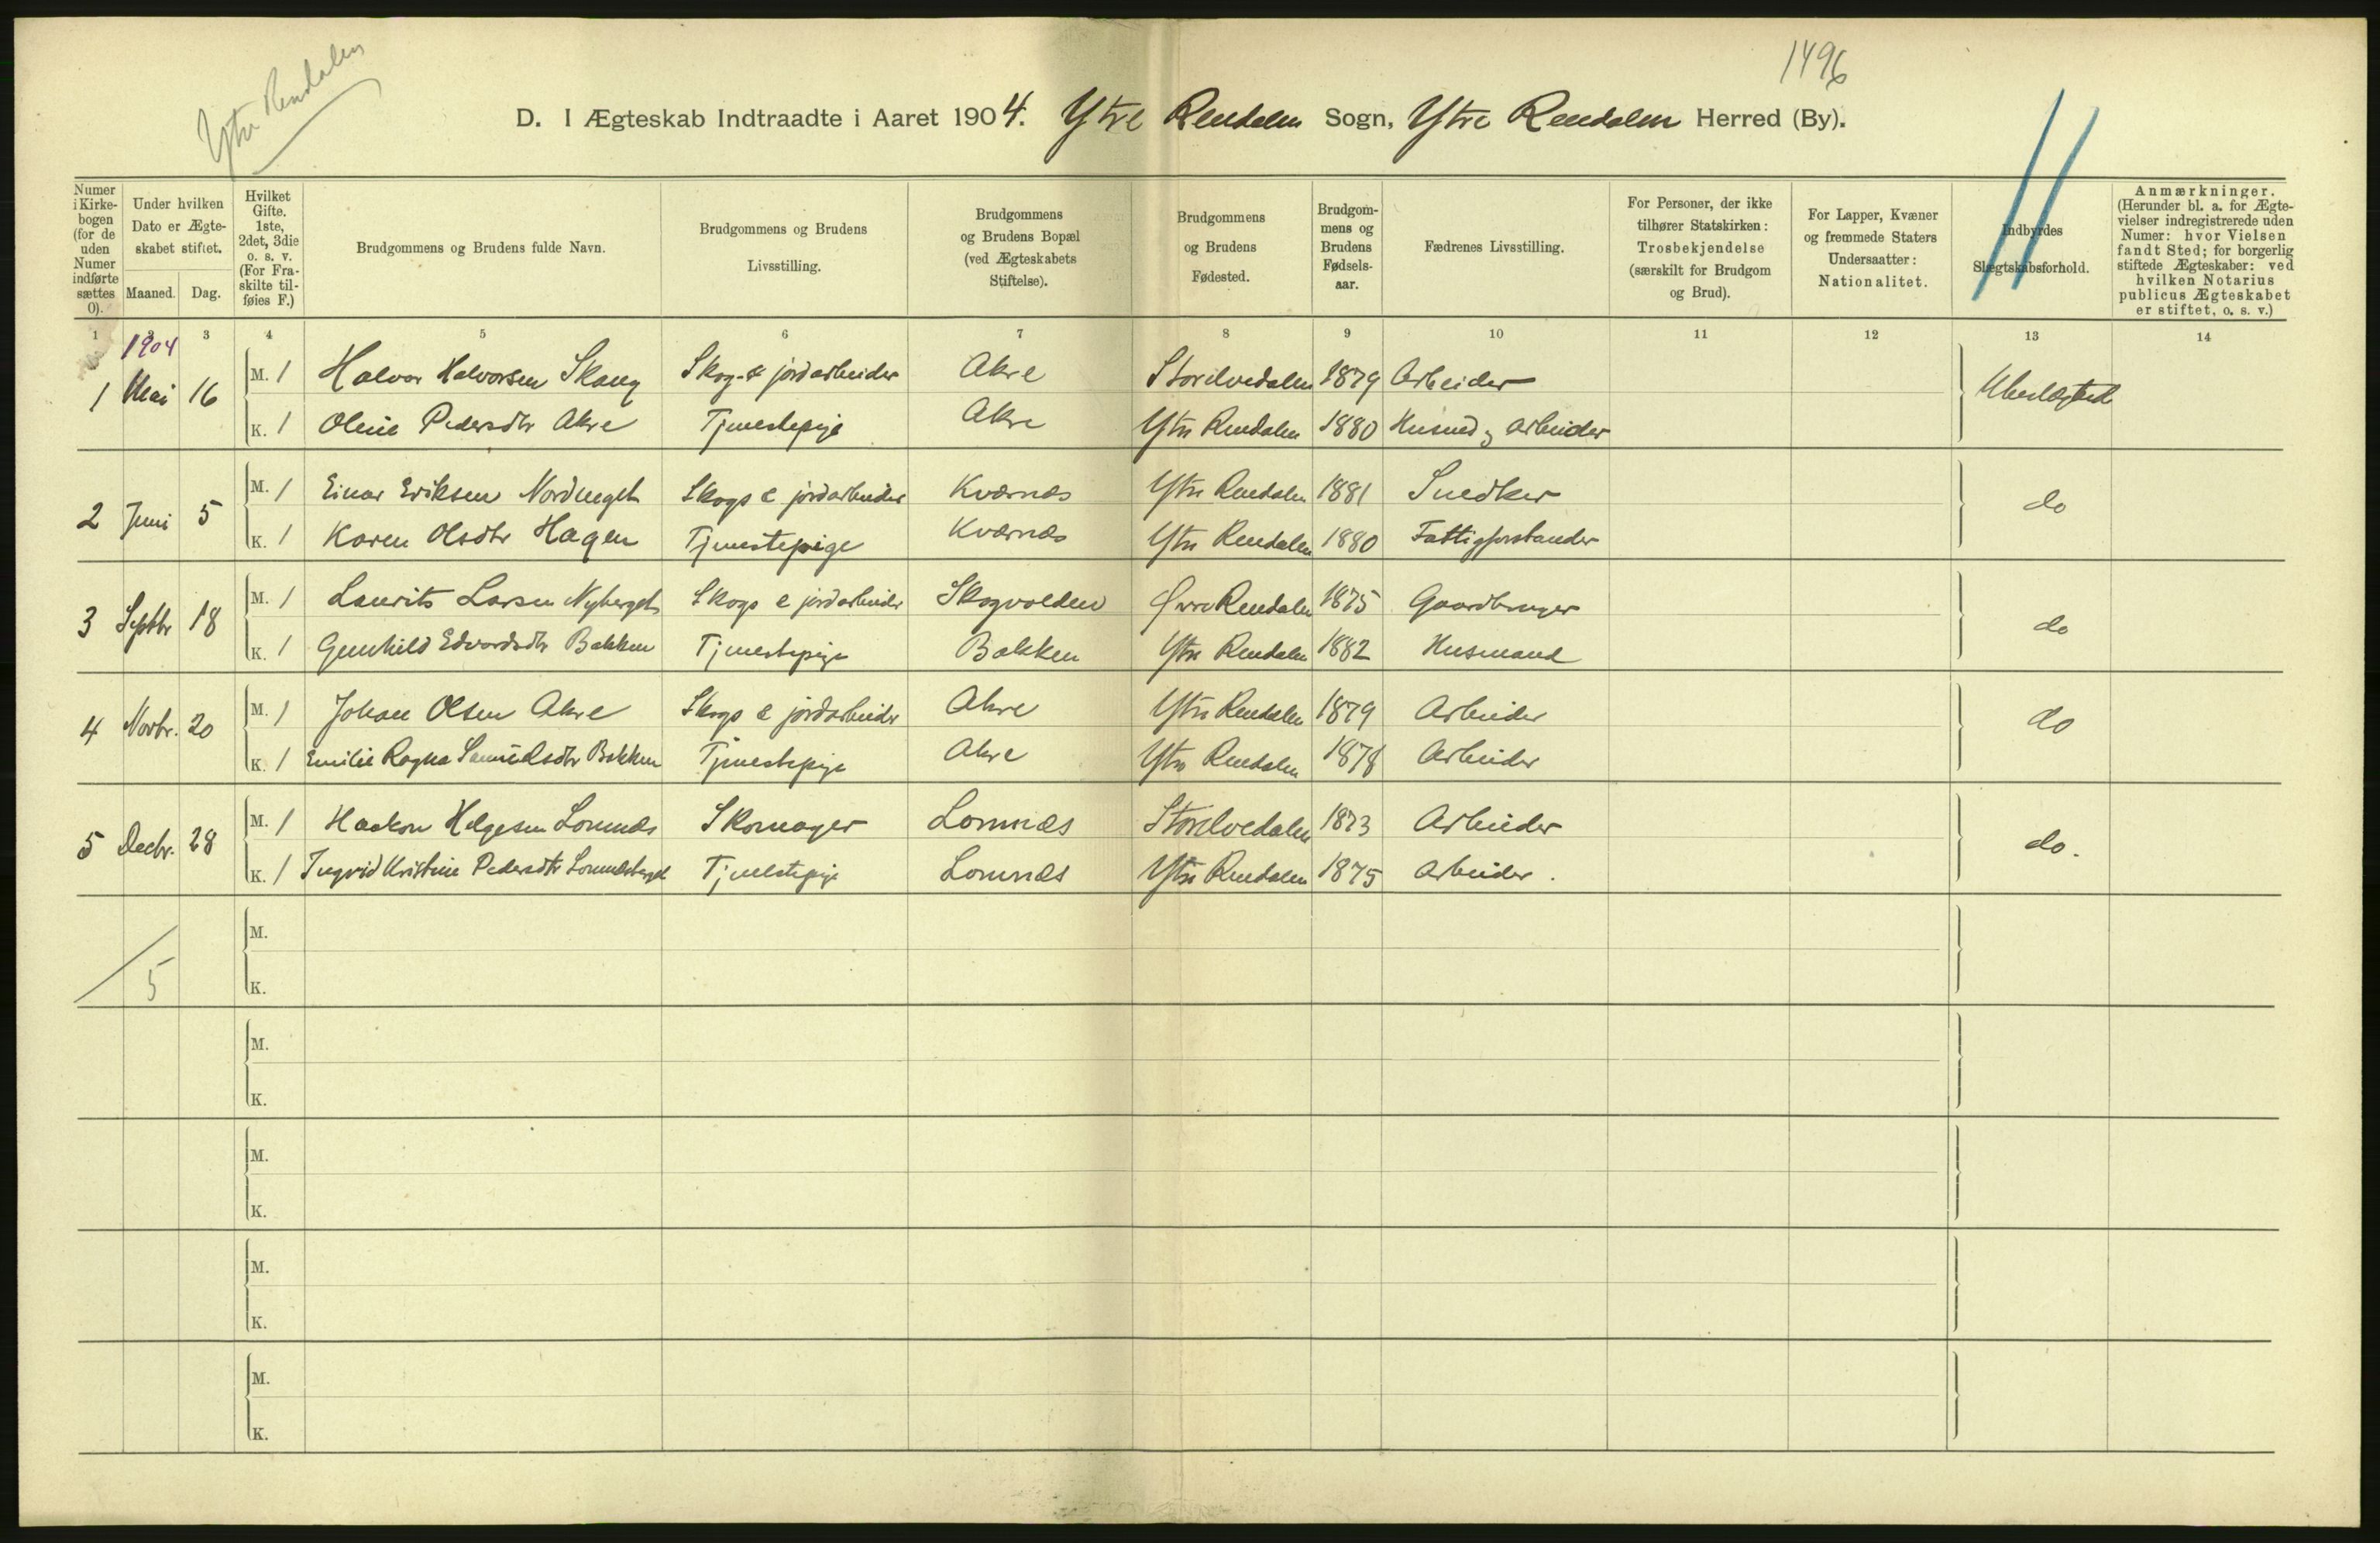 1496
Ytre Rendalen
D. I Ægteskab Indtraadte i Aaret 1904. Ytre Rendalen Sogn, Ytre Rendalen Herred (By).
Numer i Kirkebogen (for de uden Numer indførte sættes 0).
Under hvilken Dato er Ægteskabet stiftet.
Maaned. Dag.
Hvilket Gifte. 1ste, 2det, 3die o. s. v. (For Fraskilte tilføies F.)
Brudgommens og Brudens fulde Navn.
Brudgommens og Brudens Livsstilling.
Brudgommens og Brudens Bopæl (ved Ægteskabets Stiftelse).
Brudgommens og Brudens Fødested.
Brudgommens og Brudens Fødselsaar.
Fædrenes Livsstilling.
For Personer, der ikke tilhører Statskirken: Trosbekjendelse (særskilt for Brudgom og Brud).
For Lapper, Kvæner og fremmede Staters Undersaatter: Nationalitet.
Indbyrdes Slægtskabsforhold.
Anmærkninger. (Herunder bl. a. for Ægtevielser indregistrerede uden Numer: hvor Vielsen fandt Sted; for borgerlig stiftede Ægteskaber: ved hvilken Notarius publicus Ægteskabet er stiftet, o. s. v.)
1 3 4 5 6 7 8 9 10 11 12 13 14
1904
1 Mai 16 M. 1 Halvor Halvorsen Skaug Skog- & jordarbeider Akre Storelvedalen 1879 Arbeider Ubeslægtet
K. 1 Oline Pedersdtr Akre Tjenestepige Akre Ytre Rendalen 1880 Husmd og Arbeider
2 Juni 5 M. 1 Einar Eriksen Skogs & jordarbeider Kværnæs Ytre Rendalen 1881 Snedker do
K. 1 Karen Olsdtr Hagen Tjenestepige Kværnæs Ytre Rendalen 1880 Fattigforstander
3 Septbr 18 M. 1 Laurits Larsen Nyberget Skogs & jordarbeider Skogvolden Øvre Rendalen 1875 Gaardbruger do
K. 1 Gunhild Edvardsdtr Bakken Tjenestepige Bakken Ytre Rendalen 1882 Husmand
4 Novbr. 20 M. 1 Johan Olsen Akre Skogs & jordarbeider Akre Ytre Rendalen 1879 Arbeider do
K. 1 Emilie Ragna Samuelsdtr Bakken Tjenestepige Akre Ytre Rendalen 1878 Arbeider
5 Decbr. 28 M. 1 Haakon Helgesen Lomnæs Skomager Lomnæs Storelvedalen 1873 Arbeider do.
K. 1 Ingrid Kristine Pedersdtr Lomnæsberget Tjenestepige Lomnæs Ytre Rendalen 1875 Arbeider.
5
M.
K.
M.
K.
M.
K.
M.
K.
M.
K.